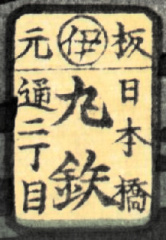 板元
伊
日本橋
通二丁目
九鉄